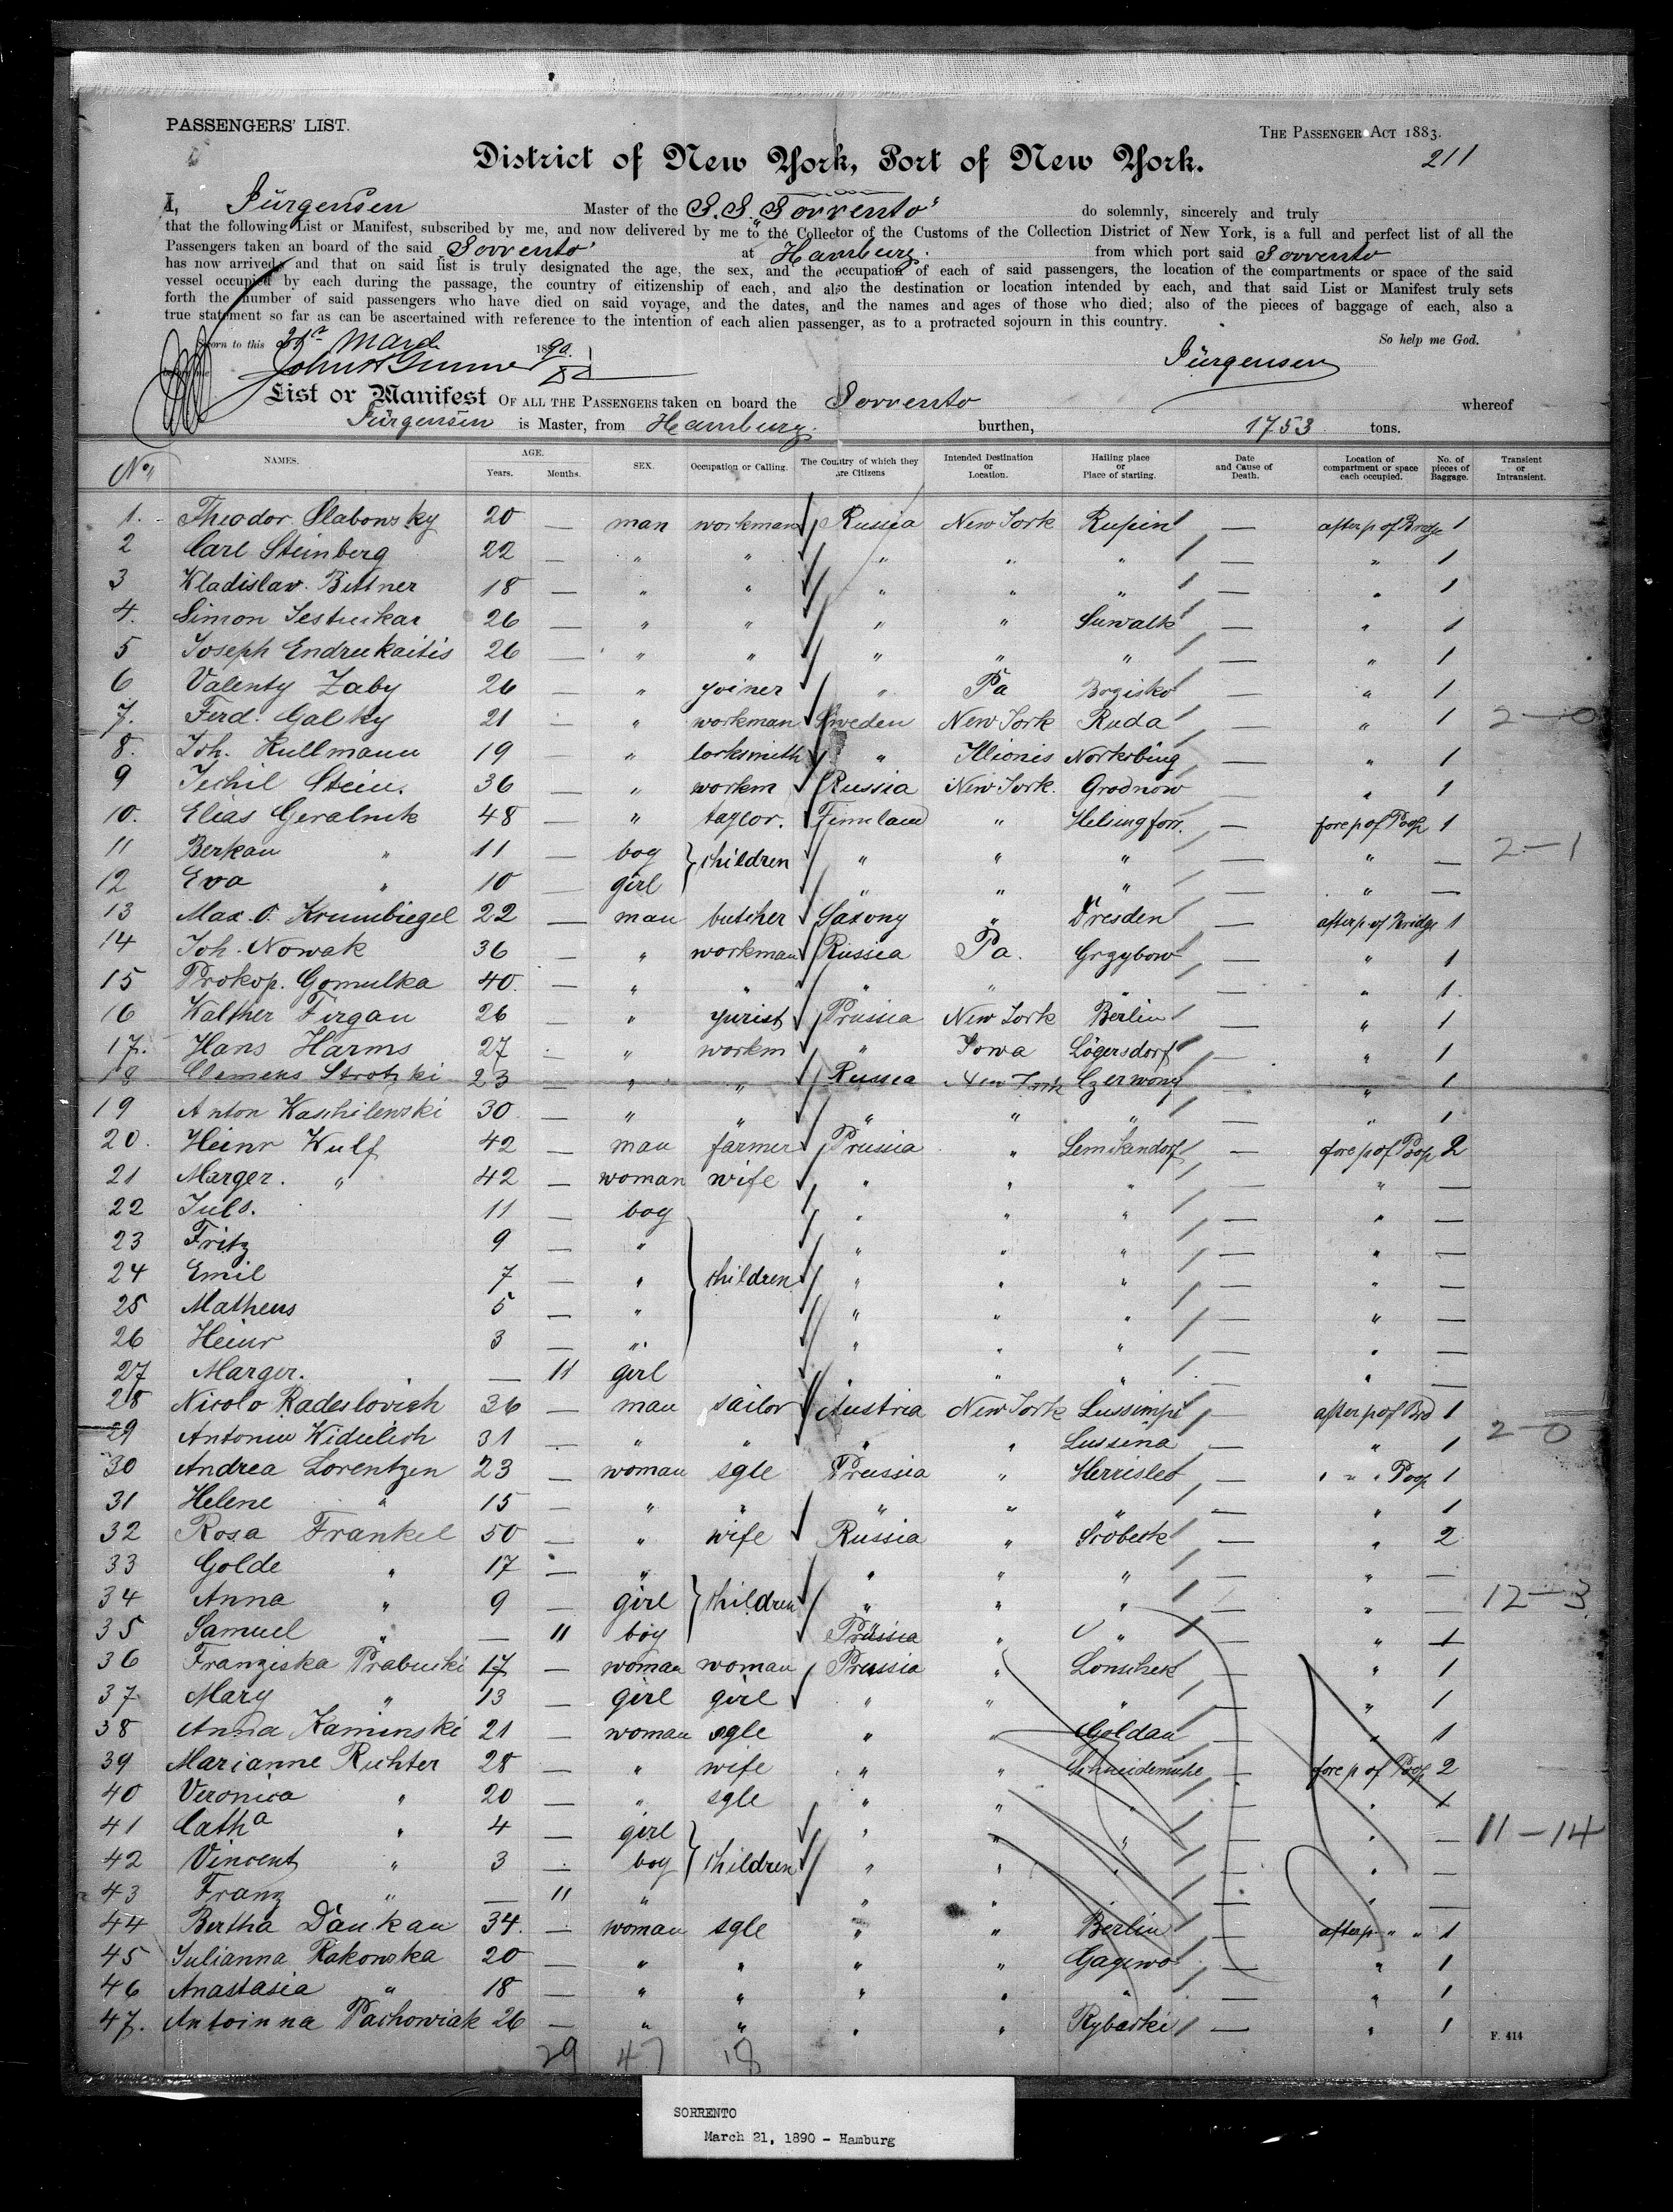 PASSENGERS' LIST.
THE PASSENGER ACT 1883.
211
District of New York, Port of New York.
I, Jürgensen Master of the S.S. "Sorrento" do solemnly, sincerely and truly
that the following List or Manifest, subscribed by me, and now delivered by me to the Collector of the Customs of the Collection District of New York, is a full and perfect list of all the
Passengers taken an board of the said Sorrento at Hamburg. from which port said Sorrento
has now arrived; and that on said list is truly designated the age, the sex, and the occupation of each of said passengers, the location of the compartments or space of the said
vessel occupied by each during the passage, the country of citizenship of each, and also the destination or location intended by each, and that said List or Manifest truly sets
forth the number of said passengers who have died on said voyage, and the dates, and the names and ages of those who died; also of the pieces of baggage of each, also a
true statement so far as can be ascertained with reference to the intention of each alien passenger, as to a protracted sojourn in this country.
Sworn to this 21st March 1890. So help me God.
Jürgensen
List or Manifest OF ALL THE PASSENGERS taken on board the Sorrento whereof
Jürgensen is Master, from Hamburg. burthen, 1753 tons.
No. NAMES. AGE. Years. Months. SEX. Occupation or Calling. The Country of which they are Citizens Intended Destination or Location. Hailing place or Place of starting. Date and Cause of Death. Location of compartment or space each occupied. No. of pieces of Baggage. Transient or Intransient.
1. Theodor Slabowsky 20 — man workman Russia New York Rupin — afterp of Bridge 1
2 Carl Steinberg 22 — " " " " " — " 1
3 Wladislav. Bittner 18 — " " " " " — " 1
4. Simon 26 — " " " " Suwalk — " 1
5 Joseph Endrukaitis 26 — " " " " " — " 1
6 Valenty Zaby 26 — " joiner " Pa Bogisko — " 1
7. Ferd. Galsky 21 — " workman Sweden New York Ruda — " 1 2—0
8. Joh. Kullmann 19 — " locksmith " Illionis Norkobing — " 1
9 Jechil Stein. 36 — " workm Russia New York. Grodnow — " 1
10. Elias Geralnik 48 — " taylor. Finnland " Helsingfors. — forep of Poop 1
11 Berkau " 11 — boy children " " " — " — 2—1
12 Eva " 10 — girl " " " — " —
13 Max. O. Krumbiegel 22 — man butcher Saxony " Dresden — afterp of Bridge 1
14 Joh. Nowak 36 — " workman Russia Pa. Grzybow — " 1
15 Prokop. Gomulka 40. — " " " " " — " 1.
16 Walther Firgau 26 — " jurist Prussia New York Berlin — " 1
17. Hans Harms 27 — " workm " Iowa Lögersdorf — " 1
18 Clemens Strotzki 23 — " " Russia New York Czerwony — " 1
19 Anton Waschilewski 30. — " " " " " — " 1
20. Heinr Wulf 42 — man farmer Prussia " Lemkendorf — forep of Poop 2
21 Marger. " 42 — woman wife " " " — " —
22 Juls. 11 — boy " " " — " —
23 Fritz 9 — " " " " — " —
24 Emil 7 — " children " " " — " —
25 Matheus 5 — " " " " — " —
26 Heinr 3 — " " " " — " —
27 Marger. — 11 girl " " " — " —
28 Nicolo Radeslovich 36 — man sailor Austria New York Lussimpi — after pof Brd 1
29 Antoniu Widulich 31 — " " " " Lussina — " 1 2—0
30 Andrea Lorentzen 23 — woman sgle Prussia " Herrisled — " " " Poop 1
31 Helene " 15 — " " " " " — " 1
32 Rosa Frankel 50 — " wife Russia " Sröbeck — " 2
33 Golde " 17 — " " " " — " —
34 Anna " 9 — girl children " " " — " — 12—3
35 Samuel " — 11 boy Prussia " " — " 1
36 Franziska Prabucki 17 — woman woman Prussia " Lonschek — " 1
37 Mary " 13 — girl girl " " " — " 1
38 Anna Kaminski 21 — woman sgle " " Goldau — " 1
39 Marianne Richter 28 — " wife " " Schneidemühe — fore p of Poop 2
40 Veronica " 20 — " sgle " " " — " 1
41 Catha " 4 — girl " " " — " — 11—14
42 Vincent " 3 — boy children " " " — " —
43 Franz " — 11 " " " " — " —
44 Bertha Daukau 34. — woman sgle " " Berlin — afterp " " 1
45 Julianna Rakowska 20 — " " " " Gagewo — " 1
46 Anastasia " 18 — " " " " " — " 1
47. Antoinna Pachowiak 26 — " " " " Rybarki — " 1
F. 414
29 47 18
SORRENTO
March 21, 1890 - Hamburg